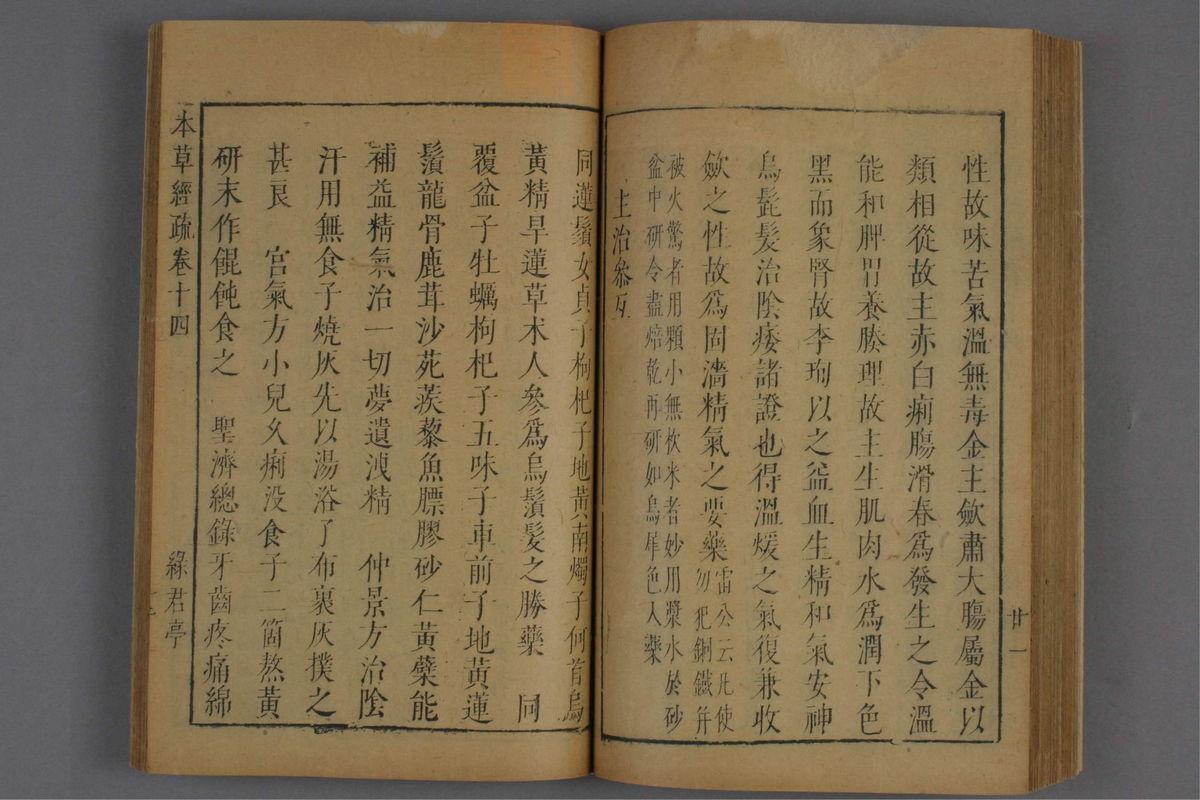 性故味苦氣溫無毒金主歛肅大腸屬金以
類相從故主赤白痢腸滑春爲發生之令溫
能和脾胃養腠理故主生肌肉水爲潤下色
黑而象腎故李珣以之益血生精和氣安神
烏髭髮治陰痿諸證也得溫煖之氣復兼收
歛之性故爲固濇精氣之要藥雷公云凡使勿犯銅鐵幷
被火驚者用顆小無杴米者妙用漿水於砂
盆中研令盡焙乾再研如烏犀色入藥
主治參互
廿一
同蓮鬚女貞子枸杞子地黃南燭子何首烏
黃精旱蓮草朮人參爲烏鬚髮之勝藥　同
覆盆子牡蠣枸杞子五味子車前子地黃蓮
鬚龍骨鹿茸沙苑蒺藜魚膘膠砂仁黃蘗能
補益精氣治一切夢遺洩精　仲景方治陰
汗用無食子燒灰先以湯浴了布裹灰撲之
甚良　宮氣方小兒久痢沒食子二箇熬黃
研末作餛飩食之　聖濟總錄牙齒疼痛綿
本草經疏卷十四
綠君亭